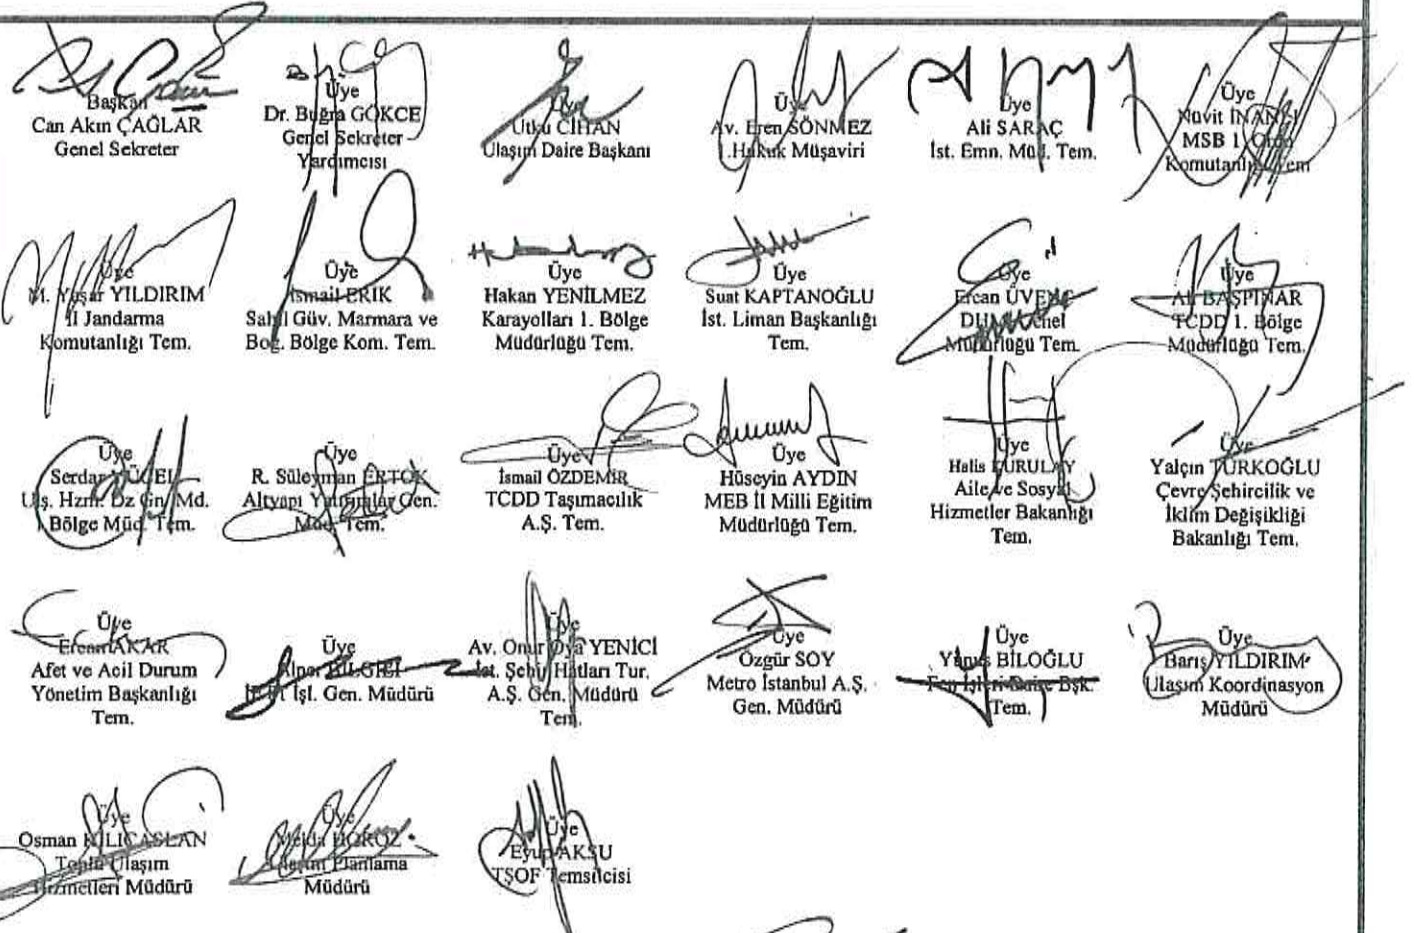 Başkan
Can Akın ÇAĞLAR
Genel Sekreter
Üye
Dr. Buğra GÖKCE
Genel Sekreter
Yardımcısı
Üye
Utku CİHAN
Ulaşım Daire Başkanı
Üye
Av. Eren SÖNMEZ
1.Hukuk Müşaviri
Üye
Ali SARAÇ
İst. Emn. Müd. Tem.
Üye
Nüvit
MSB 1. Ordu
Komutanlığı Tem
Üye
M. Yaşar YILDIRIM
İl Jandarma
Komutanlığı Tem.
Üye
İsmail ERIK
Sahil Güv. Marmara ve
Boğ. Bölge Kom. Tem.
Üye
Hakan YENİLMEZ
Karayolları 1. Bölge
Müdürlüğü Tem.
Üye
Suat KAPTANOĞLU
İst. Liman Başkanlığı
Tem.
Üye
Ercan
Genel
Müdürlüğü Tem.
Üye
Ali BAŞPINAR
TCDD 1. Bölge
Müdürlüğü Tem.
Üye
Serdar YÜCEL
Ulş. Hzm. Dz Gn. Md.
Bölge Müd. Tem.
Üye
R. Süleyman ERTOK
Altyapı Yatırımlar Gen.
Müd. Tem.
Üye
İsmail ÖZDEMİR
TCDD Taşımacılık
A.Ş. Tem.
Üye
Hüseyin AYDIN
MEB İl Milli Eğitim
Müdürlüğü Tem.
Üye
Halis
Aile ve Sosyal
Hizmetler Bakanlığı
Tem.
Üye
Yalçın TÜRKOĞLU
Çevre Şehircilik ve
İklim Değişikliği
Bakanlığı Tem.
Üye
Ercan AKAR
Afet ve Acil Durum
Yönetim Başkanlığı
Tem.
Üye
Alper BİLGİLİ
İETT İşl. Gen. Müdürü
Üye
Av. Onur Oya YENİCİ
İst. Şehir Hatları Tur.
A.Ş. Gen. Müdürü
Tem.
Üye
Özgür SOY
Metro İstanbul A.Ş.
Gen. Müdürü
Üye
Yunus BİLOĞLU
Fen İşleri Daire Bşk.
Tem.
Üye
Barış YILDIRIM
Ulaşım Koordinasyon
Müdürü
Üye
Osman KILIÇASLAN
Toplu Ulaşım
Hizmetleri Müdürü
Üye
Melda HOROZ
Ulaşım Planlama
Müdürü
Üye
Eyup AKSU
TŞOF Temsilcisi